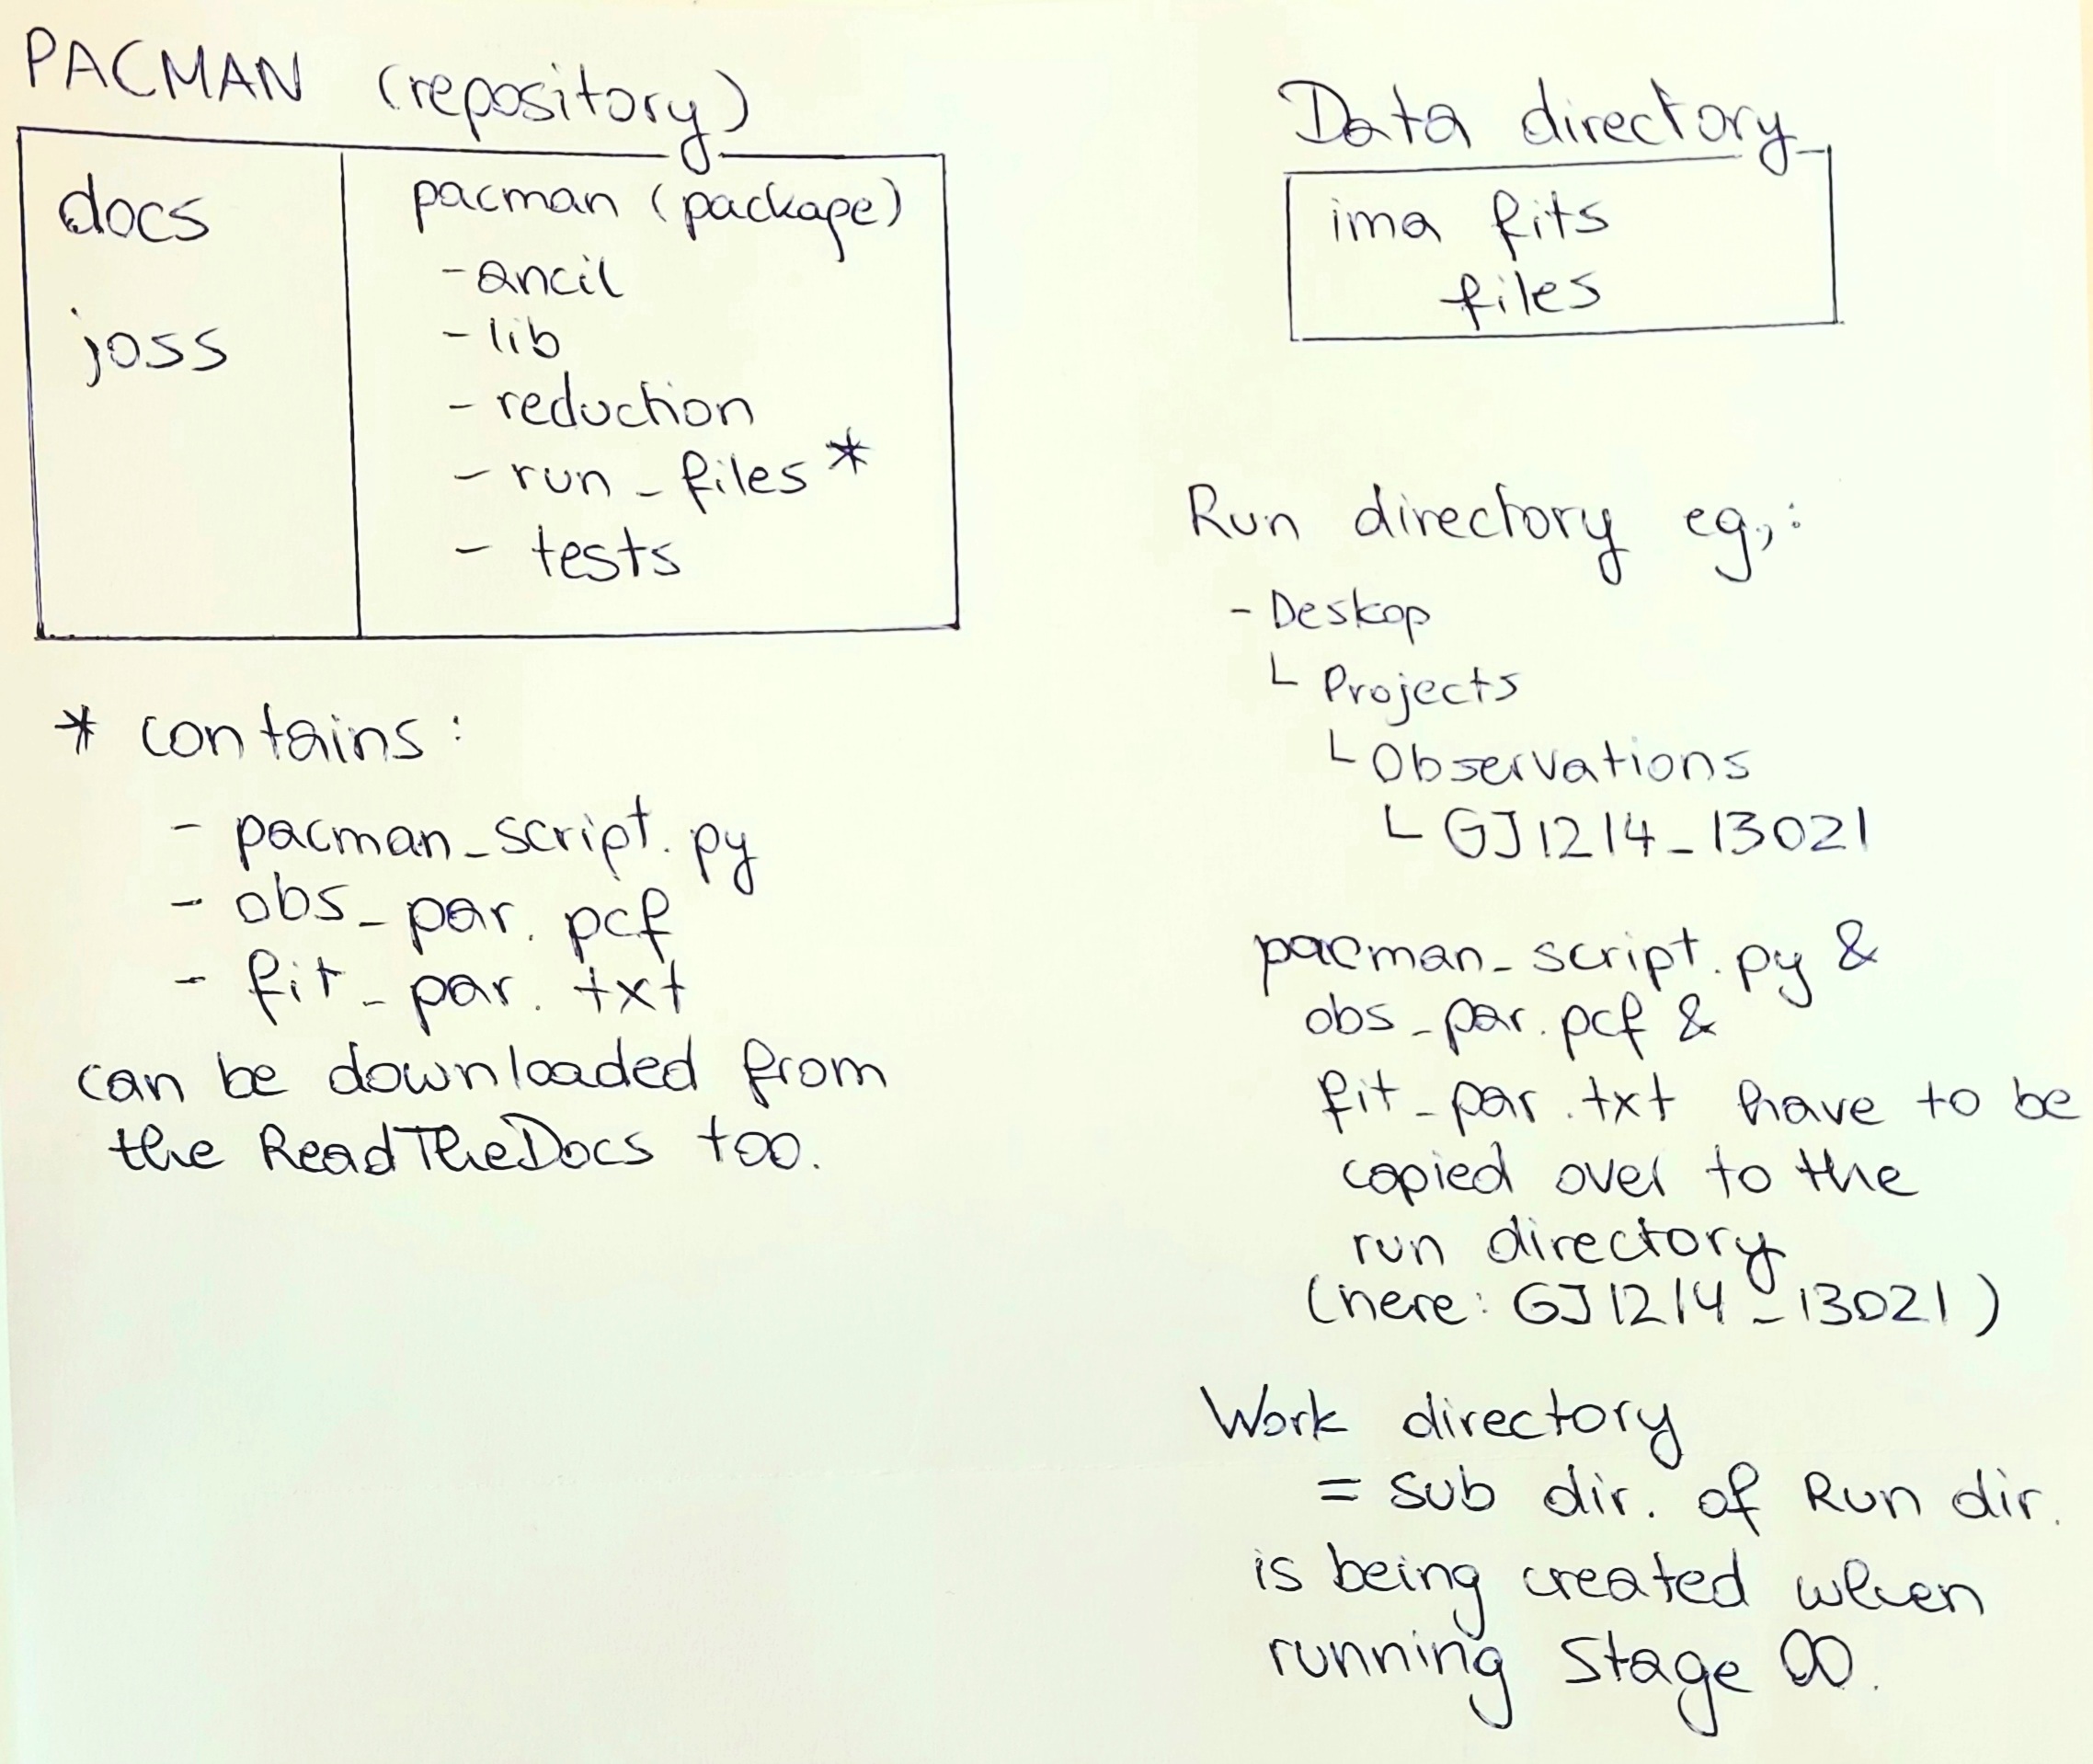 PACMAN (repository)
docs
joss
pacman (package)
- ancil
- lib
- reduction
- run_files *
- tests
* contains:
- pacman_script.py
- obs_par.pcf
- fit_par.txt
can be downloaded from
the ReadTheDocs too.
Data directory
ima fits
files
Run directory eg,:
- Deskop
└ Projects
└ Observations
└ GJ1214_13021
pacman_script.py &
obs_par.pcf &
fit_par.txt have to be
copied over to the
run directory
(here: GJ1214_13021)
Work directory
= sub dir. of Run dir.
is being created when
running Stage 00.